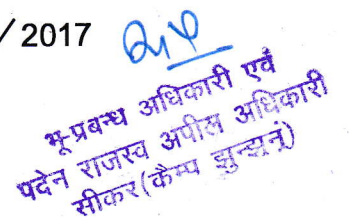 / 2017
भू-प्रबन्ध अधिकारी एवं
पदेन राजस्व अपील अधिकारी
सीकर(कैम्प झुन्झुनूं)